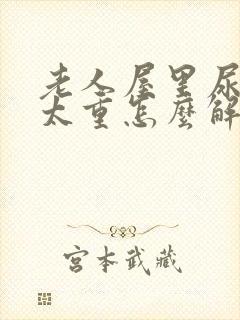 老人屋里尿
太重怎麼解
宮本武藏